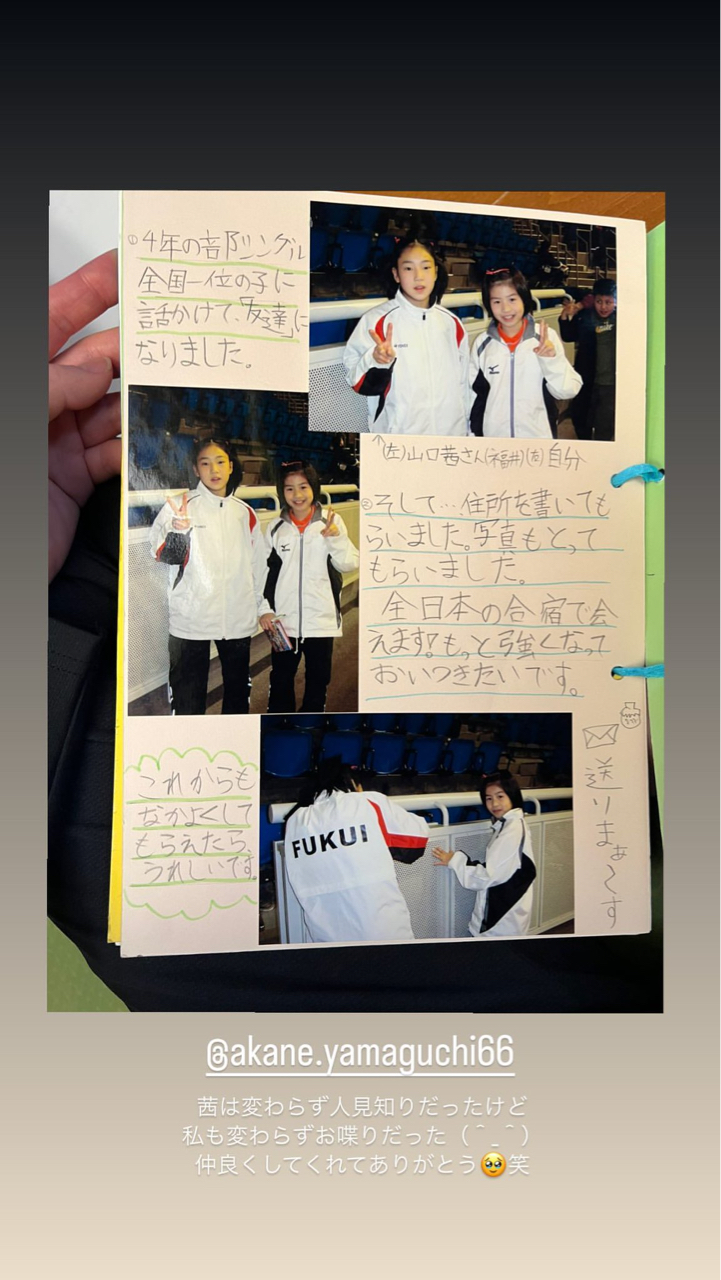 ①4年の部シングル
全国一位の子に
話かけて、「友達」に
なりました。
↑(左)山口茜さん(福井)(右)自分
②そして…住所を書いても
らいました。写真もとって
もらいました。
全日本の合宿で会
えます!もっと強くなって
おいつきたいです。
FUKUI
これからも
なかよくして
もらえたら、
うれしいです。
送りまぁ〜す
@akane.yamaguchi66
茜は変わらず人見知りだったけど
私も変わらずお喋りだった（＾_＾）
仲良くしてくれてありがとう🥹笑